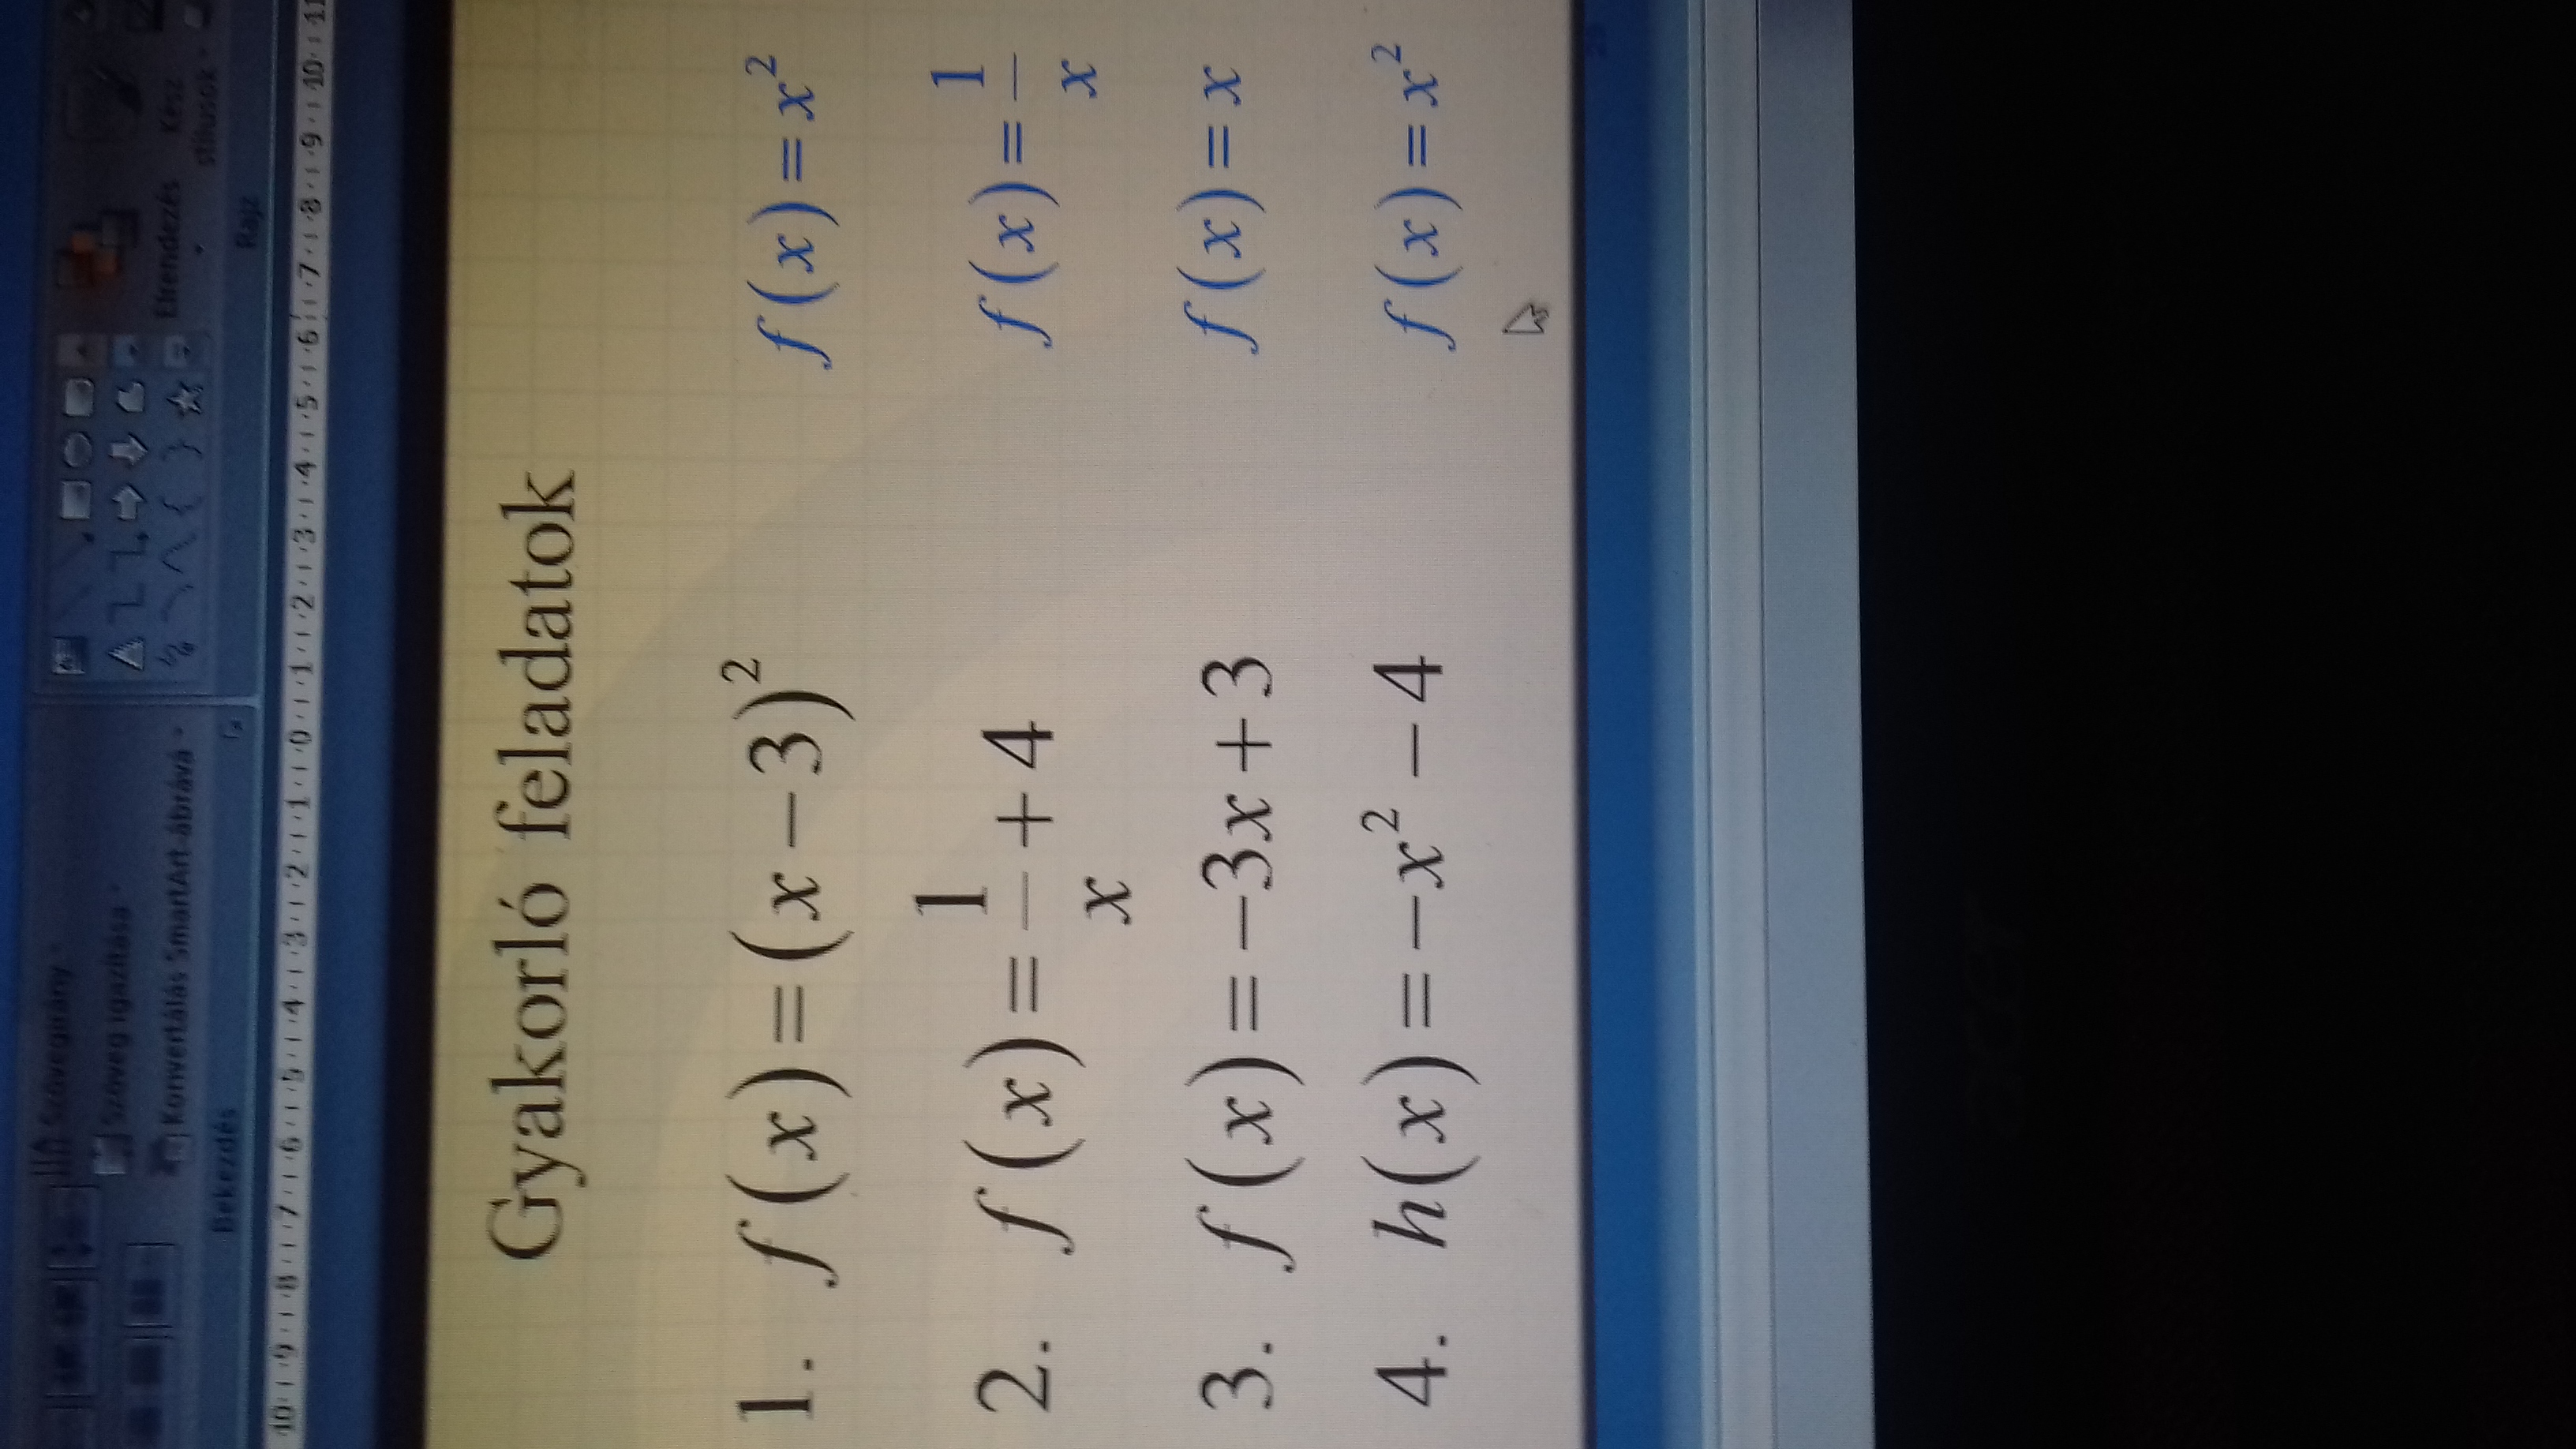 Szövegirány
Szöveg igazítása
Konvertálás SmartArt-ábrává
Bekezdés
Elrendezés
Kész
stílusok
Rajz
10 9 8 7 6 5 4 3 2 1 0 1 2 3 4 5 6 7 8 9 10 11
Gyakorló feladatok
1. f(x) = (x − 3)² f(x) = x²
2. f(x) = 1/x + 4 f(x) = 1/x
3. f(x) = −3x + 3 f(x) = x
4. h(x) = −x² − 4 f(x) = x²